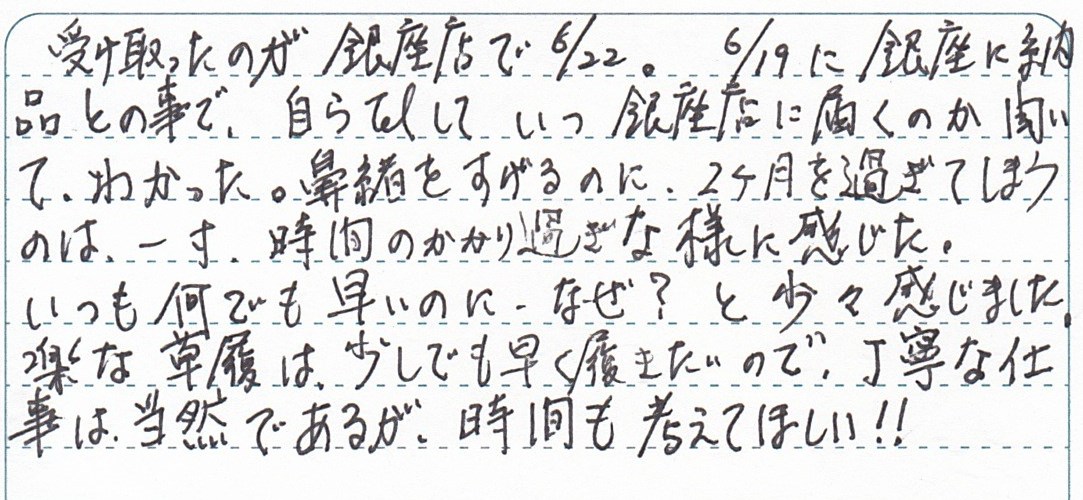 受け取ったのが銀座店で6/22。 6/19に銀座に納
品との事で、自らTelして いつ 銀座店に届くのか聞い
て、わかった。鼻緒をすげるのに、2ヶ月を過ぎてしまう
のは、一寸、時間のかかり過ぎな様に感じた。
いつも何でも早いのに-なぜ?と少々感じました。
楽な草履は、少しでも早く履きたいので、丁寧な仕
事は、当然であるが、時間も考えてほしい!!